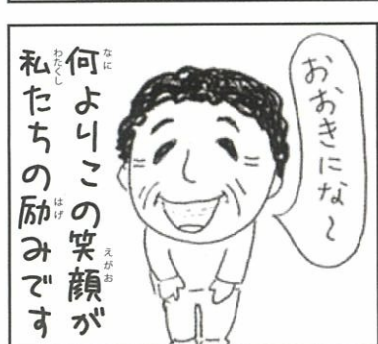 おおきにな〜
何よりこの笑顔が
私たちの励みです